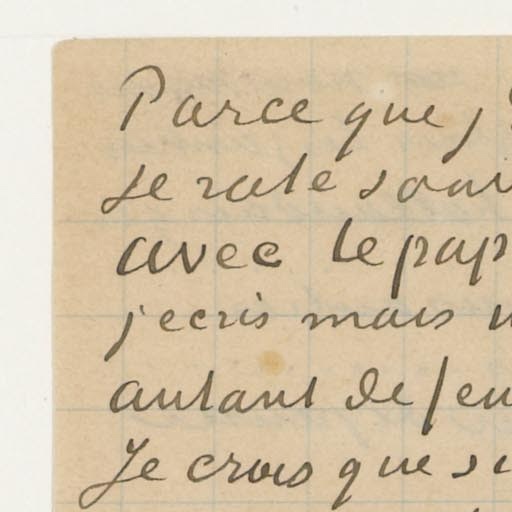 Parce que j
je rate sou
avec le pap
j'ecris mais
autant de feu
Je crois que si